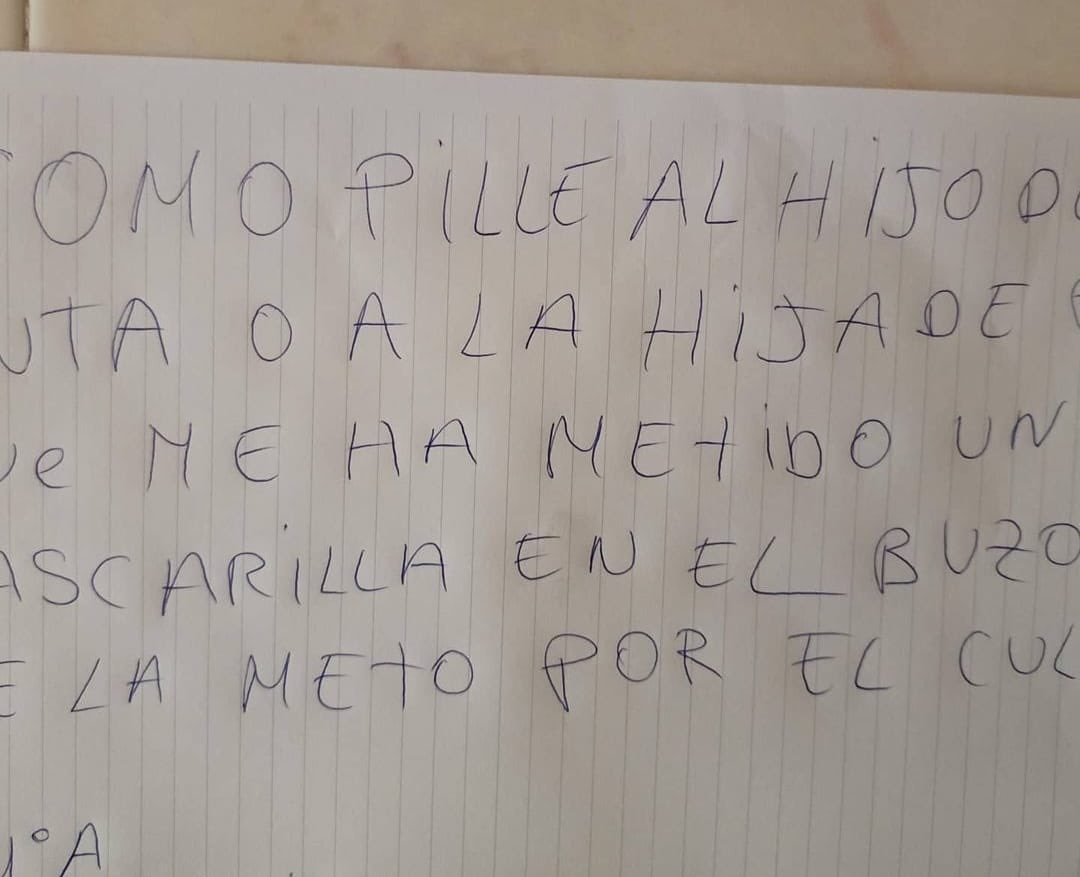 COMO PILLE AL HIJO DE
UTA O A LA HIJA DE P
UE ME HA METIDO UN
ASCARILLA EN EL BUZO
E LA METO POR EL CUL
1º A